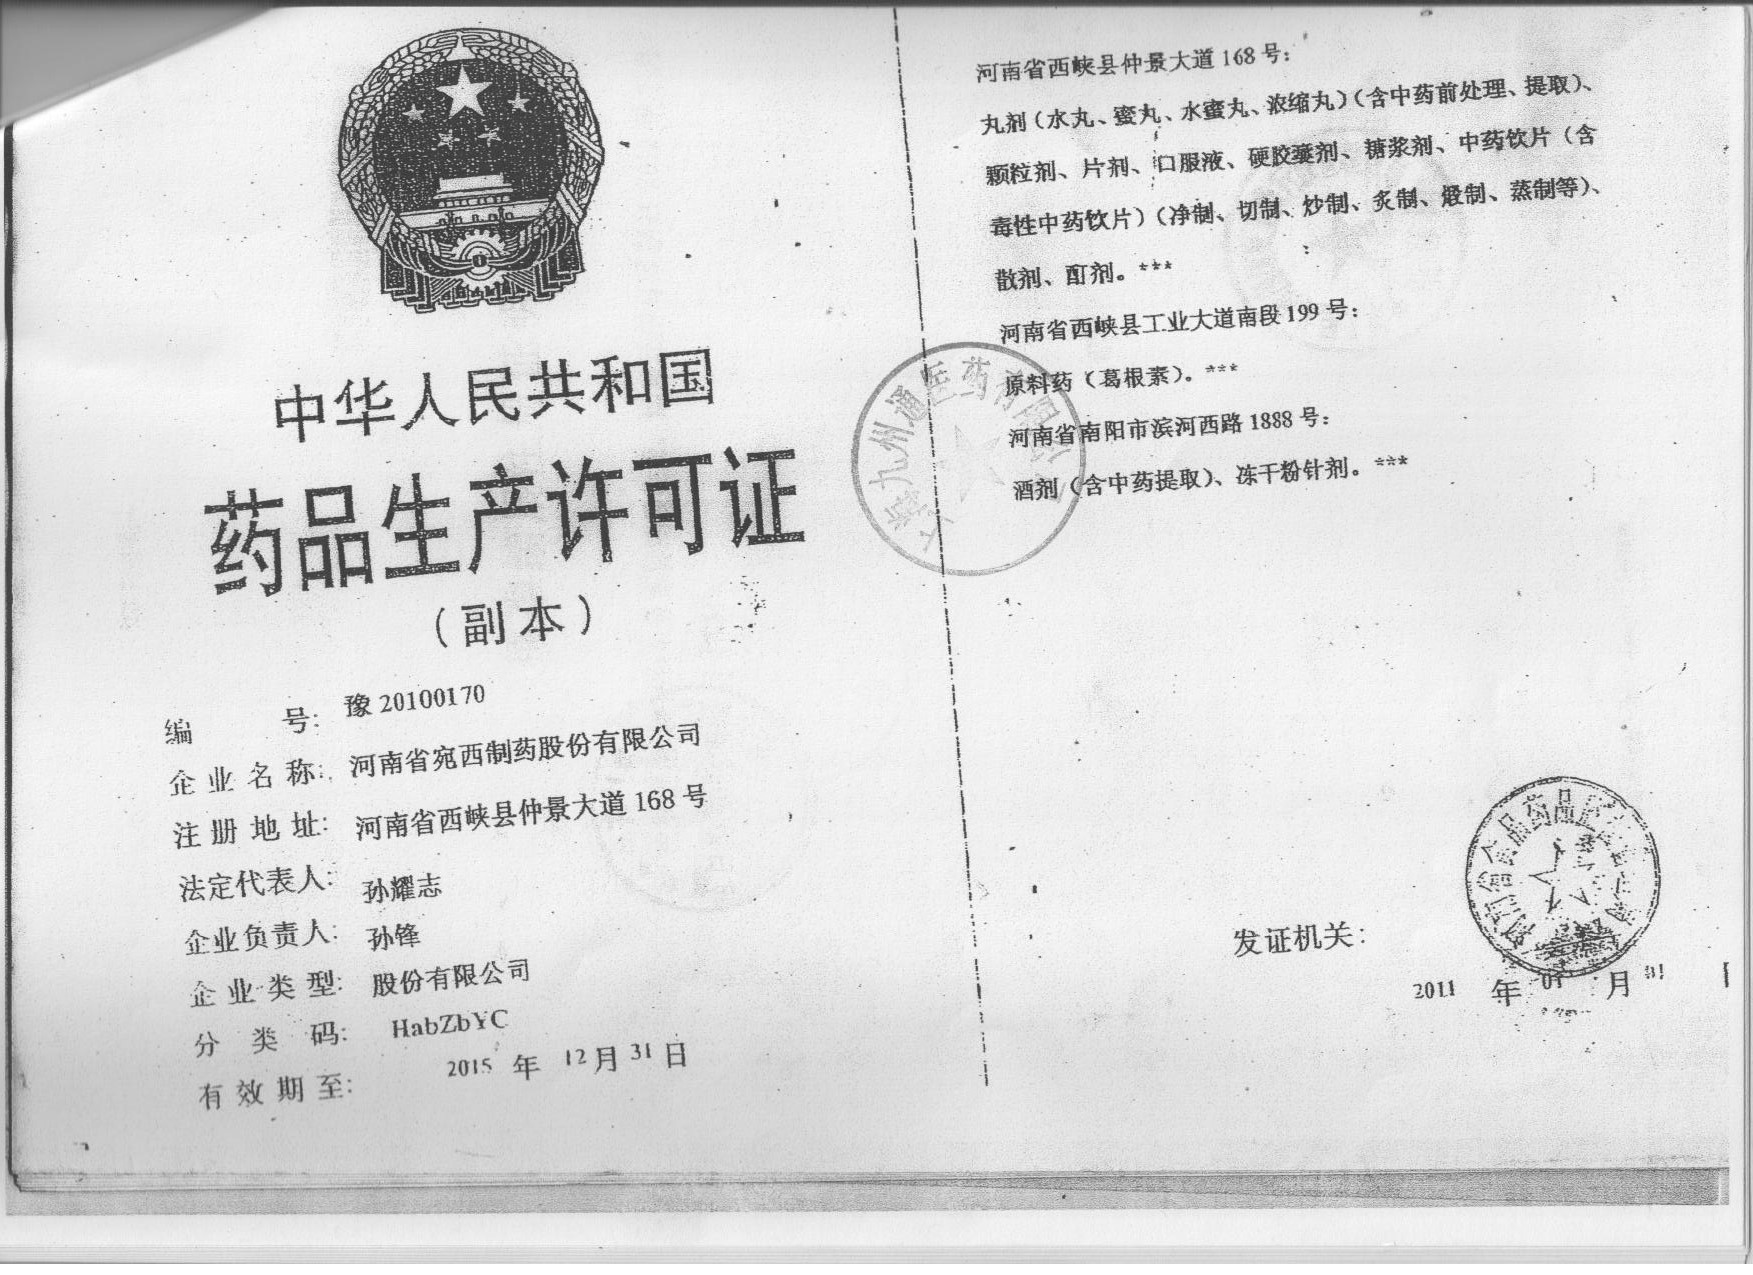 中华人民共和国
药品生产许可证
（副本）
编 号： 豫 20100170
企业名称： 河南省宛西制药股份有限公司
注册地址： 河南省西峡县仲景大道 168 号
法定代表人： 孙耀志
企业负责人： 孙锋
企业类型： 股份有限公司
分类码： HabZbYC
有效期至： 2015 年 12 月 31 日
河南省西峡县仲景大道 168 号：
丸剂（水丸、蜜丸、水蜜丸、浓缩丸）（含中药前处理、提取）、
颗粒剂、片剂、口服液、硬胶囊剂、糖浆剂、中药饮片（含
毒性中药饮片）（净制、切制、炒制、炙制、煅制、蒸制等）、
散剂、酊剂。***
河南省西峡县工业大道南段 199 号：
原料药（葛根素）。***
河南省南阳市滨河西路 1888 号：
酒剂（含中药提取）、冻干粉针剂。***
上海九州通医药有限公司
发证机关：
2011 年 01 月 01 日